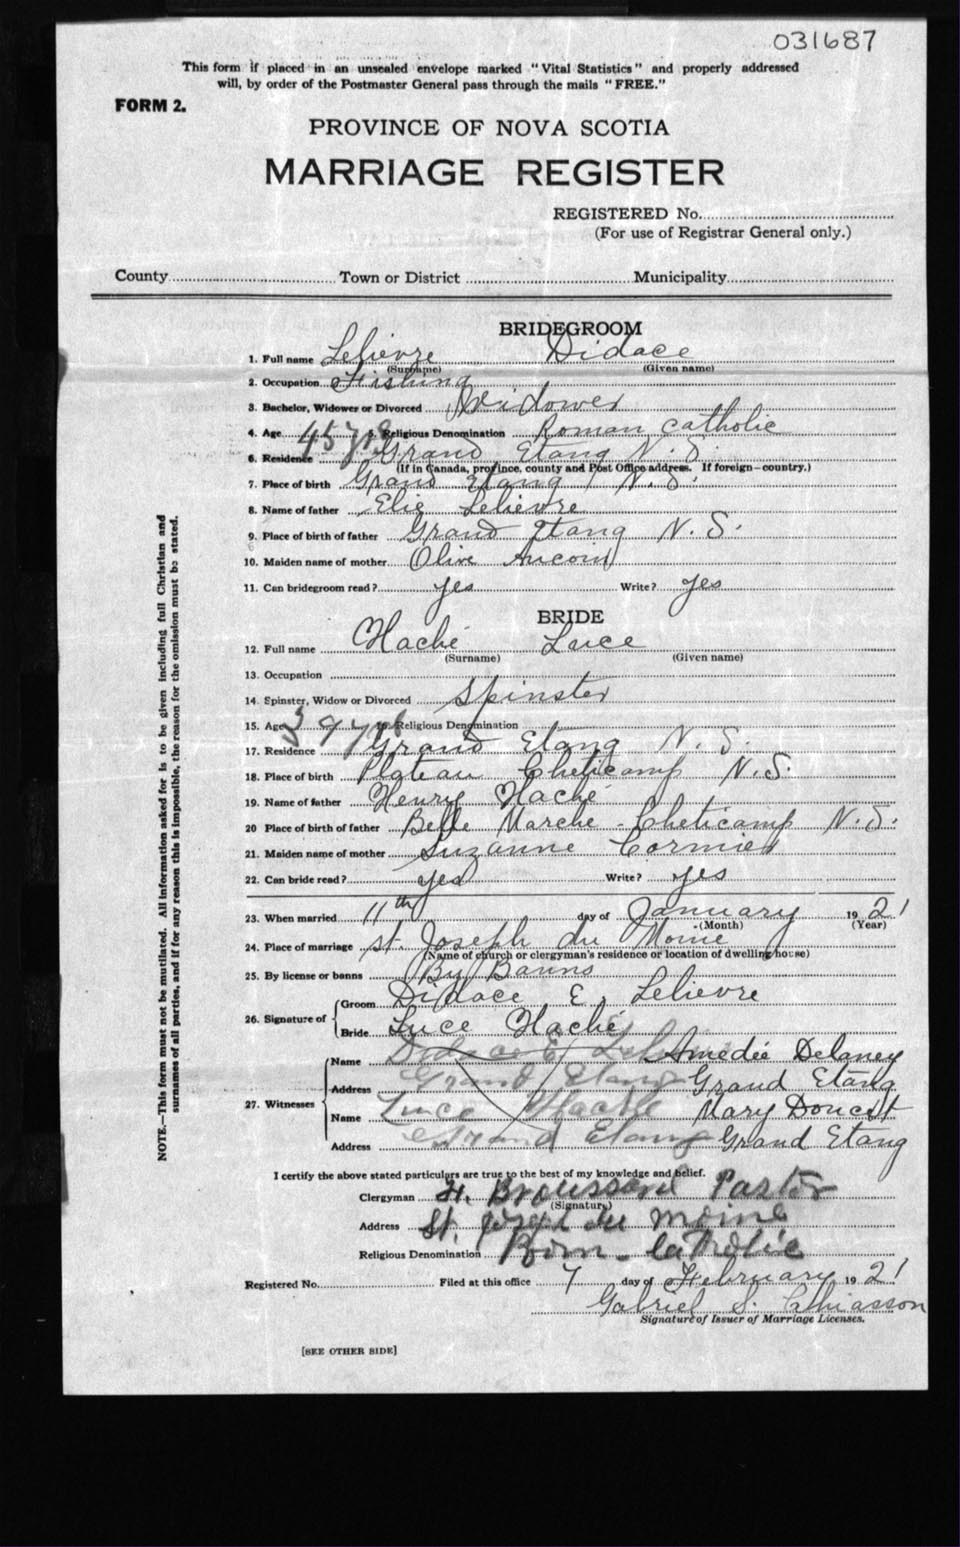 031687
This form if placed in an unsealed envelope marked "Vital Statistics" and properly addressed
will, by order of the Postmaster General pass through the mails "FREE."
FORM 2.
PROVINCE OF NOVA SCOTIA
MARRIAGE REGISTER
REGISTERED No.
(For use of Registrar General only.)
County Town or District Municipality
BRIDEGROOM
1. Full name Lelievre Didace
(Surname) (Given name)
2. Occupation Fishing
3. Bachelor, Widower or Divorced Widower
4. Age 45 yrs 5. Religious Denomination Roman Catholic
6. Residence Grand Etang N. S.
(If in Canada, province, county and Post Office address. If foreign—country.)
7. Place of birth Grand Etang N. S.
8. Name of father Elie Lelievre
9. Place of birth of father Grand Etang N. S.
10. Maiden name of mother Olive Aucoin
11. Can bridegroom read? yes Write? yes
BRIDE
12. Full name Haché Luce
(Surname) (Given name)
13. Occupation
14. Spinster, Widow or Divorced Spinster
15. Age 39 yrs 16. Religious Denomination
17. Residence Grand Etang N. S.
18. Place of birth Plateau Cheticamp N. S.
19. Name of father Henry Haché
20 Place of birth of father Belle Marche - Cheticamp N. S.
21. Maiden name of mother Suzanne Cormier
22. Can bride read? yes Write? yes
23. When married 11th day of January 1921
(Month) (Year)
24. Place of marriage St. Joseph du Moine
(Name of church or clergyman's residence or location of dwelling house)
25. By license or banns By Banns
26. Signature of Groom Didace E. Lelievre
Bride Luce Haché
27. Witnesses Name Didace E. Lelievre Amedée Delaney
Address Grand Etang Grand Etang
Name Luce Haché Mary Doucet
Address Grand Etang Grand Etang
I certify the above stated particulars are true to the best of my knowledge and belief.
Clergyman H. Broussard Pastor
(Signature)
Address St. Joseph du Moine
Religious Denomination Rom - Catholic
Registered No. Filed at this office 7 day of February 1921
Gabriel S. Chiasson
Signature of Issuer of Marriage Licenses.
[SEE OTHER SIDE]
NOTE.—This form must not be mutilated. All informations asked for is to be given including full Christian and
surnames of all parties, and if for any reason this is impossible, the reason for the omission must be stated.